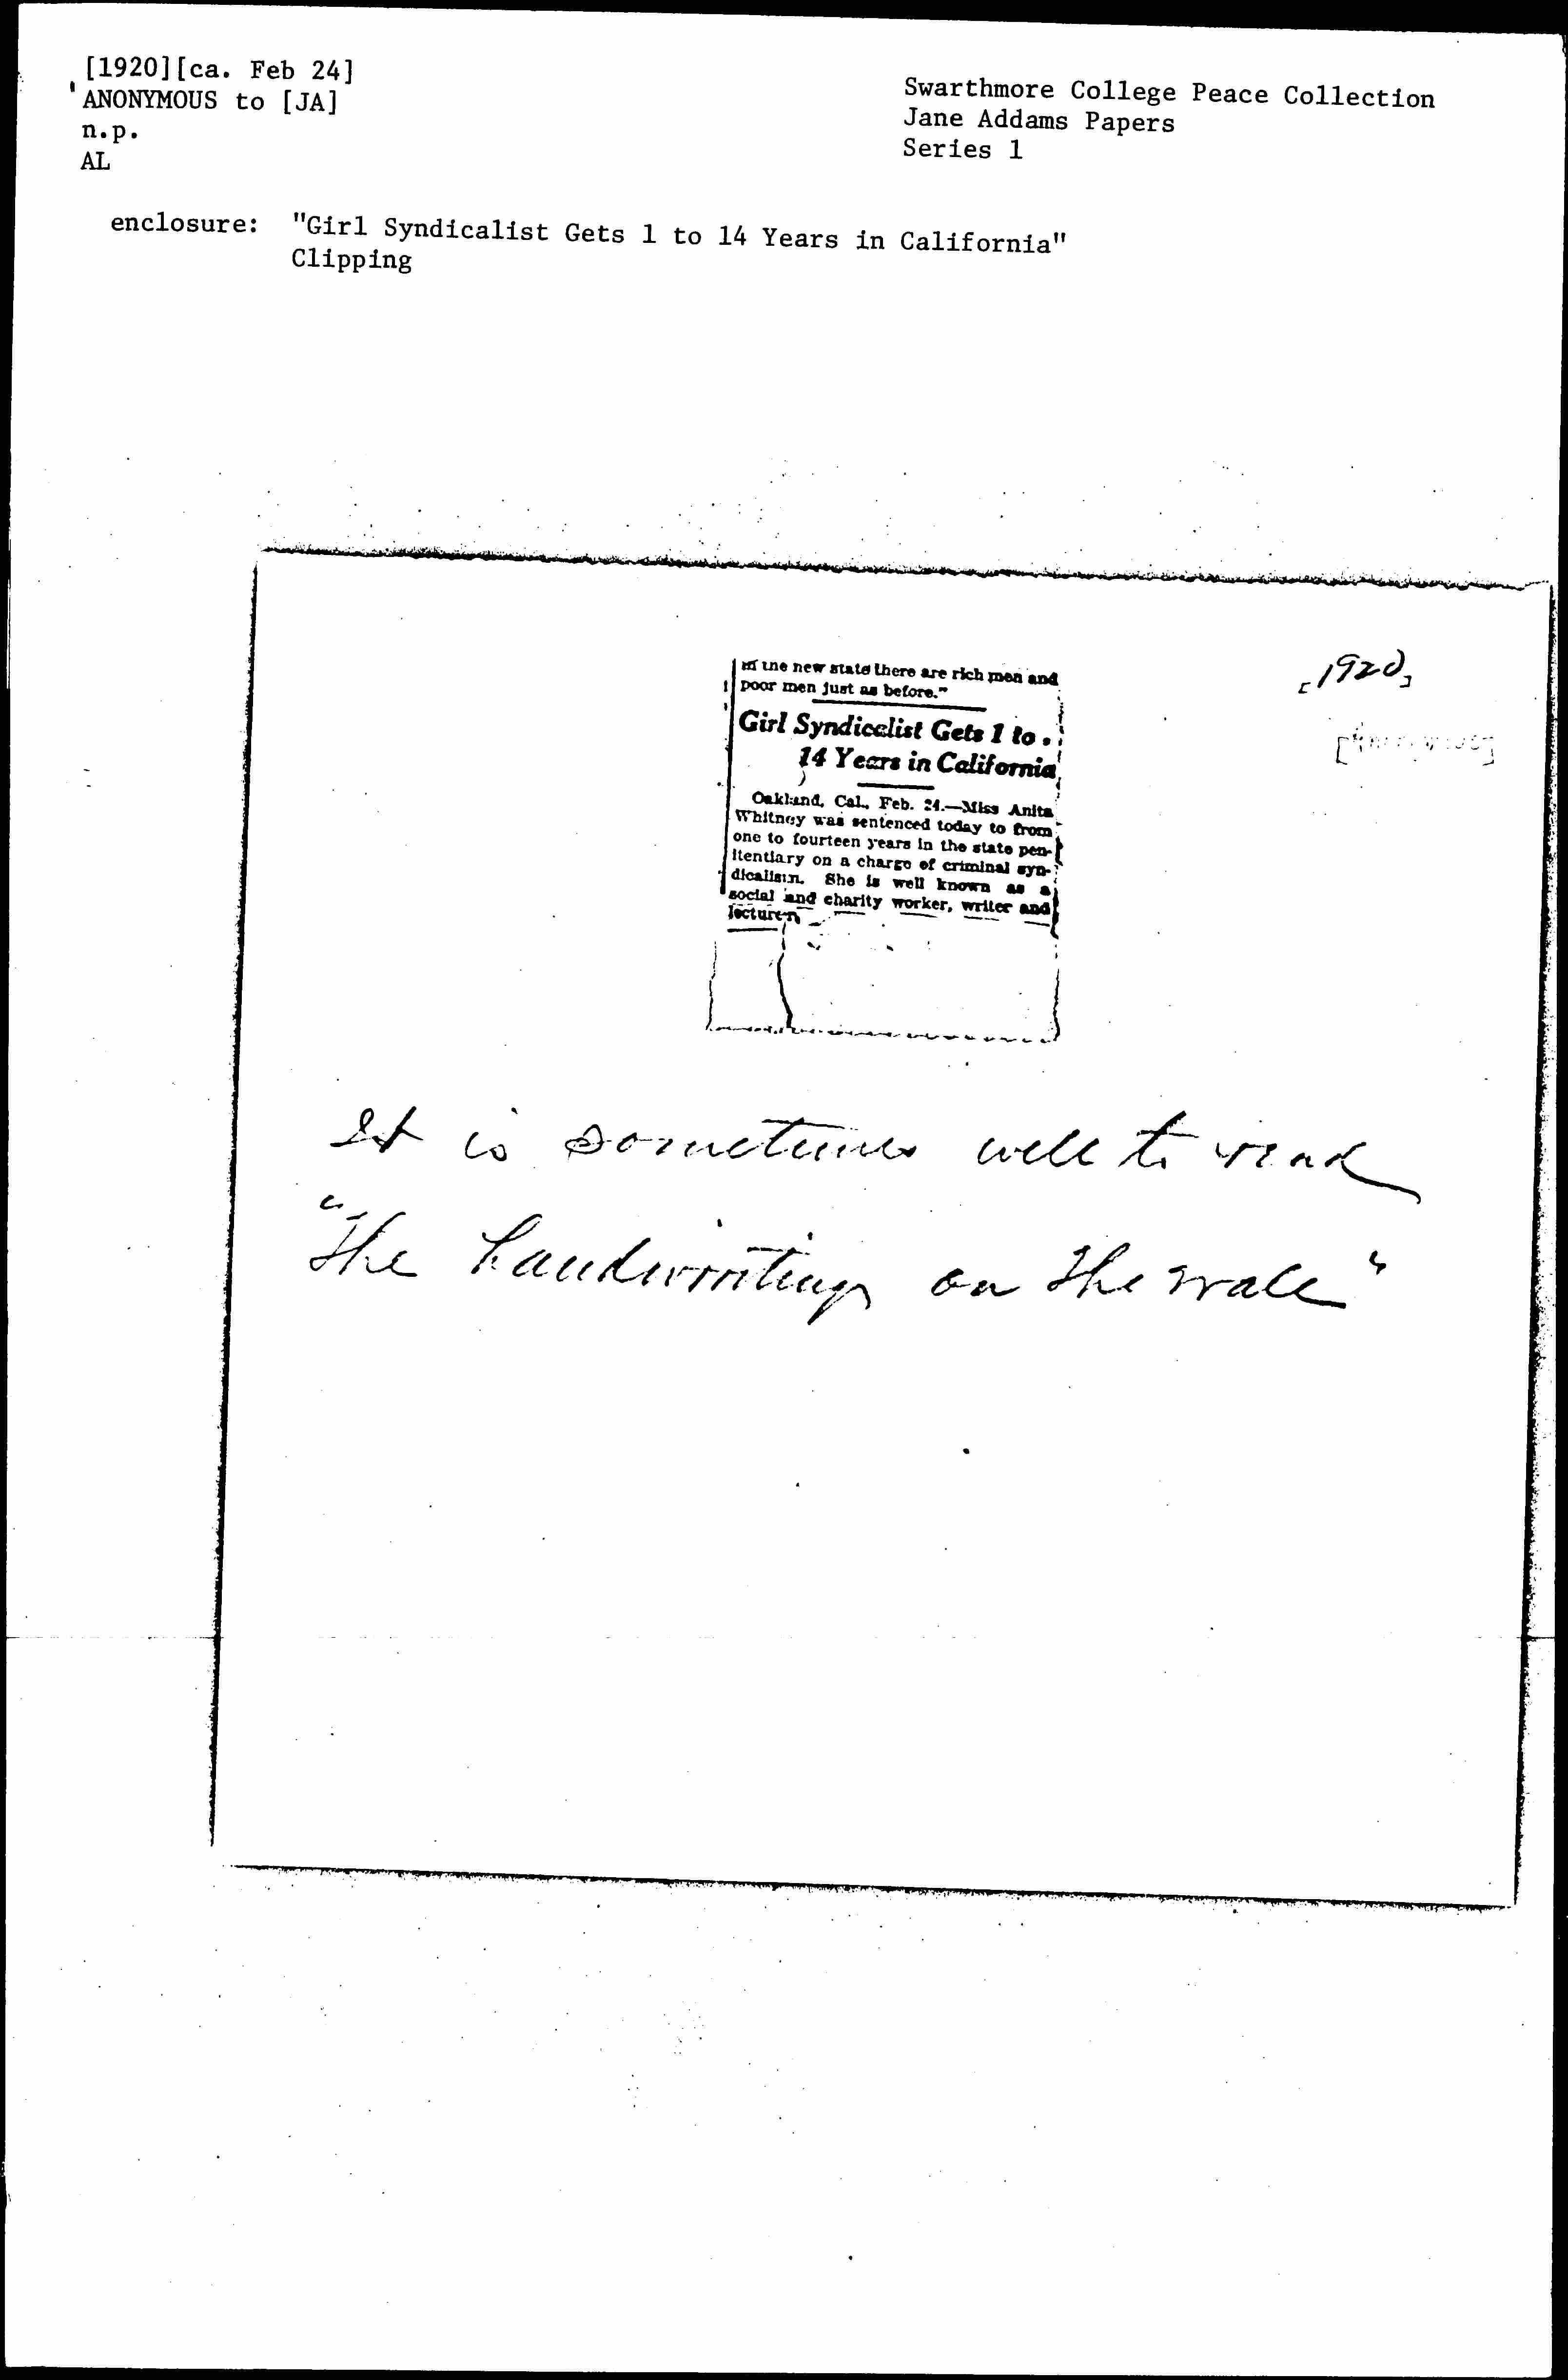 [1920][ca. Feb 24]
ANONYMOUS to [JA]
n.p.
AL
Swarthmore College Peace Collection
Jane Addams Papers
Series 1
enclosure: "Girl Syndicalist Gets 1 to 14 Years in California"
Clipping
[1920]
in the new state there are rich men and
poor men just as before."
Girl Syndicalist Gets 1 to
14 Years in California
Oakland, Cal., Feb. 24.—Miss Anita
Whitney was sentenced today to from
one to fourteen years in the state pen-
itentiary on a charge of criminal syn-
dicalism. She is well known as a
social and charity worker, writer and
lecturer.
It is sometimes well to read
"The handwriting on the wall"